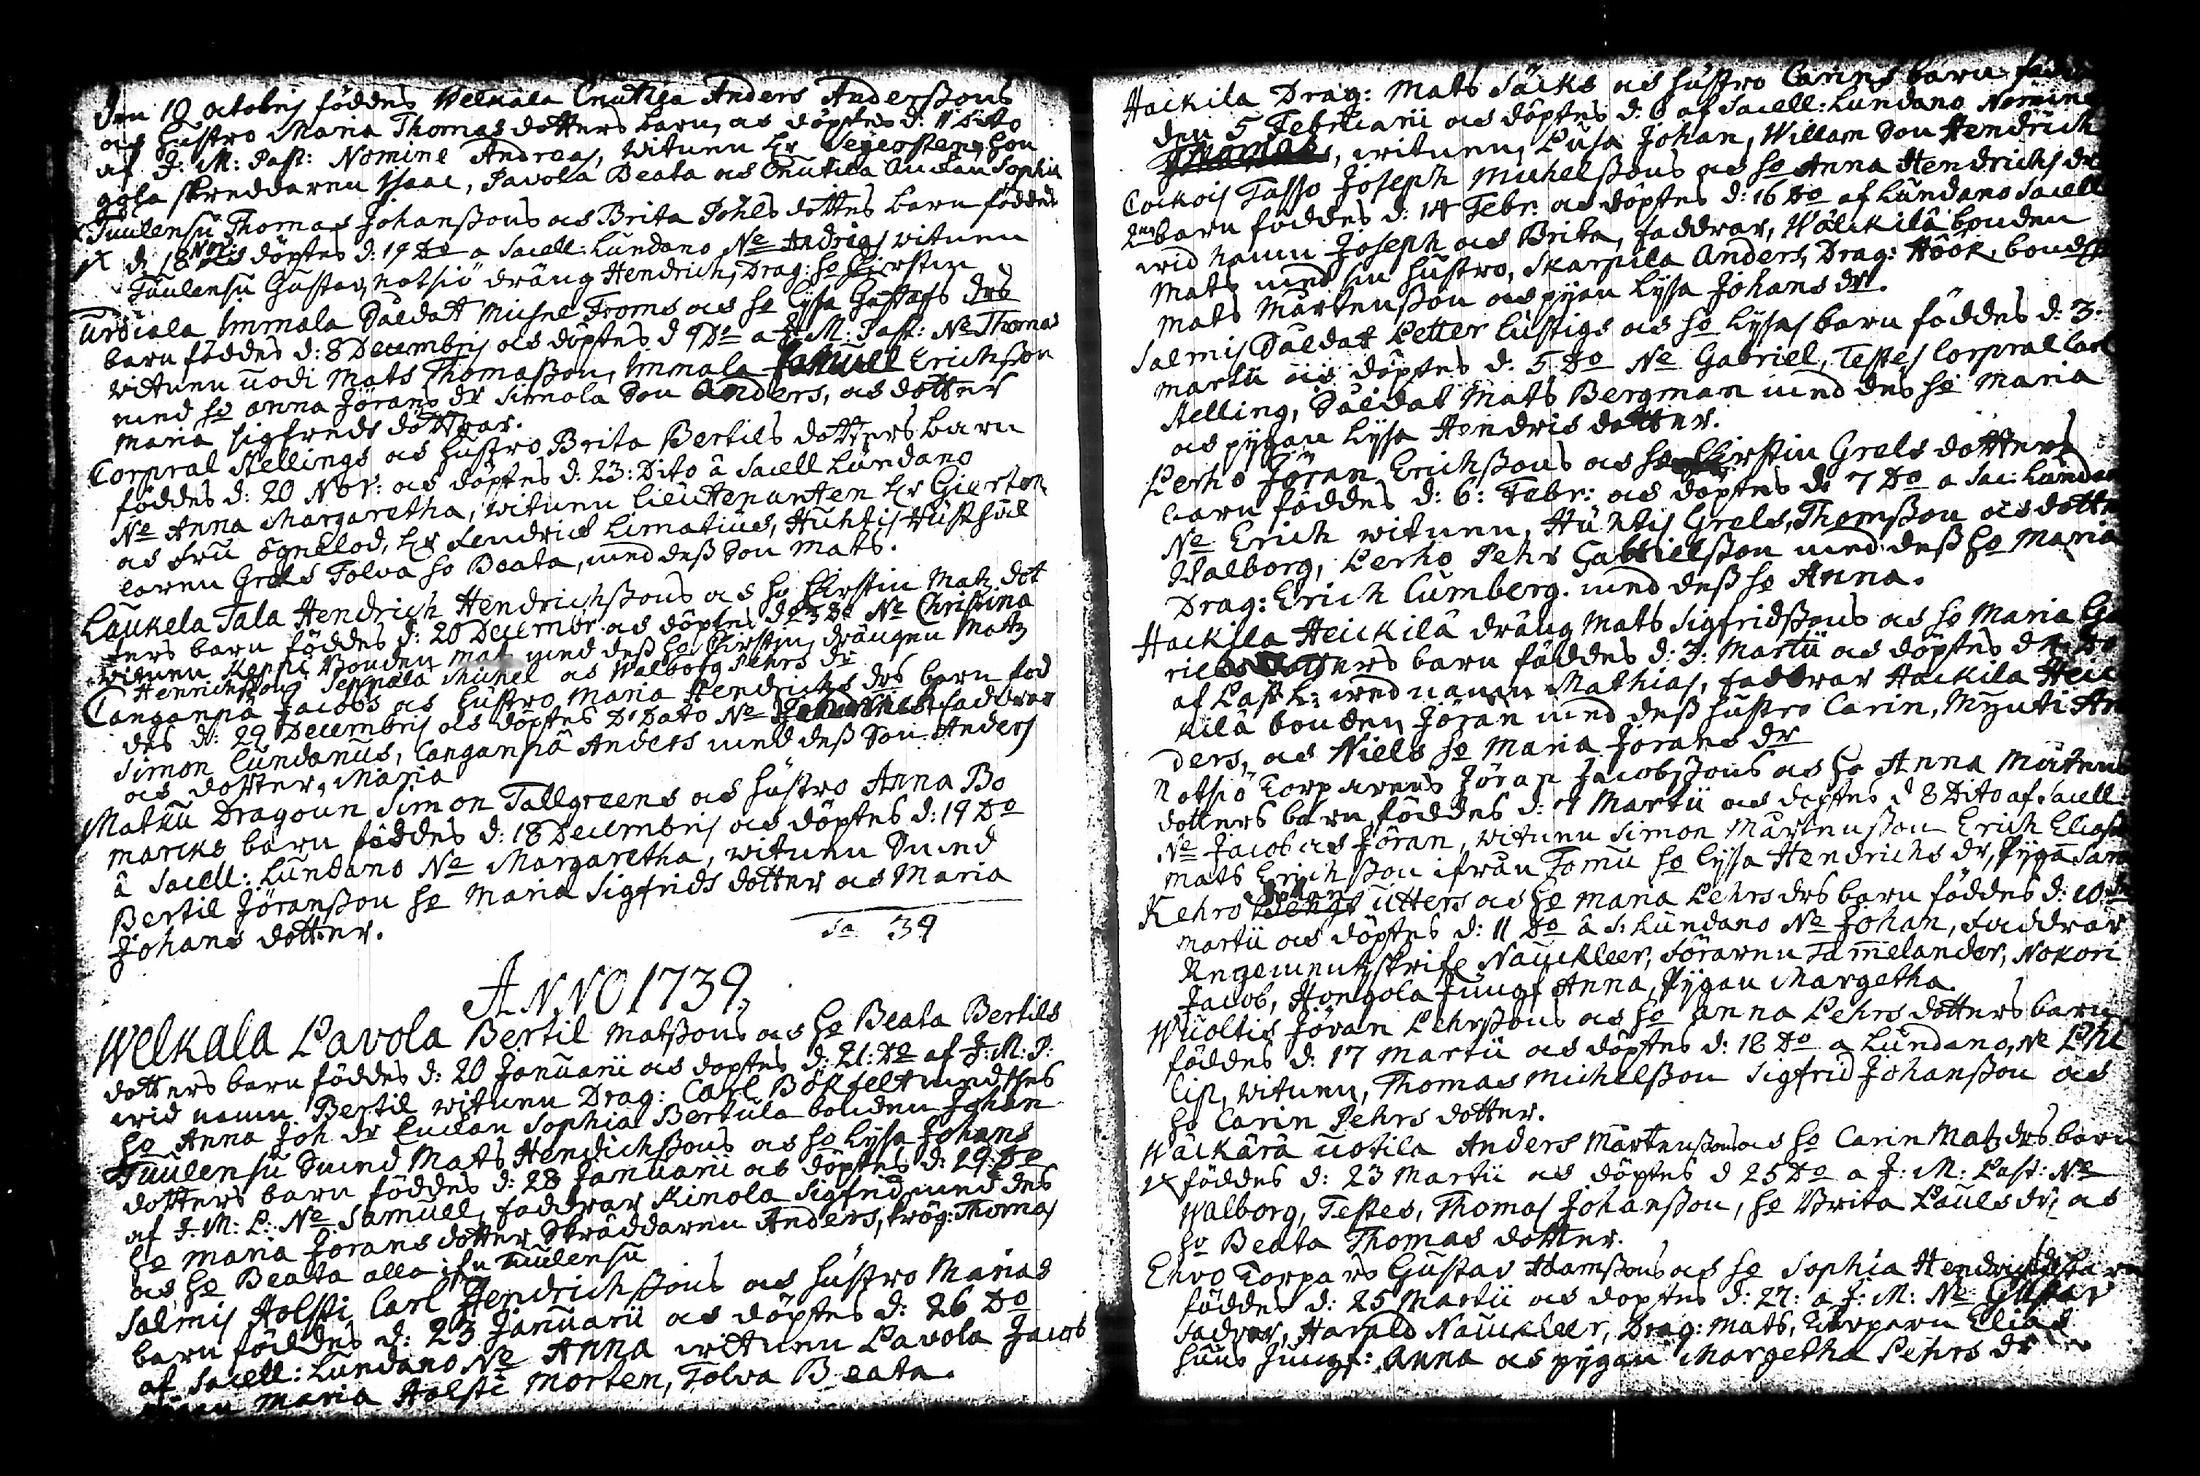 Den 10 octobris föddes Welkala Cnutila Anders Anderssons
och hustro Maria Thomas dotters barn, ock döptes d: 11 dito
af J. M: Past: Nomine Andreas, vitnen hr Segersten, Hon
gola skreddaren Isaac, Pavola Beata ock Cnutila Sophia
Tuulensu Thomas Johanssons ock Brita Påhls dotters barn föddes
d: 18 Novris döptes d: 19 Do a Sacell: Lundano Ne Andreas vitnen
Tuulensu Gustav, notsiö dräng Hendrich, Drag: ho Kirstin
Urdiala Immala Saldatt Michel Froms ock ho Lysa Gustafs drs
barn föddes d: 8 Decembris ock döptes d 9 Do a J. M: Past: Ne Thomas
vittnen uodi Mats Thomasson, Immala Samuel Erichsson
med ho Anna Jörans dr Simola Son Anders, ock dotter
Maria Sigfreds dottrar.
Corpral Stellings ock hustro Brita Bertils dotters barn
föddes d: 20 Nov: ock döptes d: 23: Dito â Sacell Lundano
Ne Anna Margaretha, vitnen Lieutenanten hr Gierten
ock Fru Ögneclod, hr Fendrick Limatius, Huhtis Hust
laren Grels Tolva ho Beata, med dess Son Mats.
Laukela Tala Hendrich Hendrichssons ock ho Kirstin Matz dot
ters barn föddes d: 20 Decembr ock döptes d 23 Do Ne Christina
vitnen Keppi Bonden Mat med dess ho Kirstin, drängen Matz
Henrichsson Seppälä Michel ock Walborg Pehrs dr
Canganpä Jacobs ock hustro Maria Hendrichs drs barn föd
des d: 29 Decembris ock döptes Do Dato Ne Johannes faddrar
Simon Lundanus, Canganpä Anders med dess Son Anders
ock dotter, Maria
Matku Dragoun Simon Tallgreens ock hustro Anna Bo
marcks barn föddes d: 18 Decembris ock döptes d: 19 Do
â Sacell: Lundano Ne Margaretha, vitnen Smed
Bertil Jöransson ho Maria Sigfrids dotter ock Maria
Johans dotter.
Sa 39
ANNO 1739.
Welkala Pavola Bertil Matssons ock ho Beata Bertils
dotters barn föddes d: 20 Januarii ock döptes d: 21: Do af J: M: P:
wid namn Bertil vitnen Drag: Carl Bökfelt med thes
ho Anna Joh dr Sophia Bertula bonden Johan
Tuulensu Smed Mats Hendichssons ock ho Lysa Johans
dotters barn föddes d: 28 Januarii ock döptes d: 29: Do
af J. M: P: Ne Samuel, faddrar Kimola Sigfrid med des
ho Maria Jörans dotter Skräddaren Anders, Thomas
ock ho Beata alla ifrn Tuulensu
Salmis Holsti Carl Hendrichssons ock hustro Marias
barn föddes d: 23 Januarii ock döptes d: 26 Do
af Sacell: Lundano Ne Anna vittnen Pavola Jacob
Maria Holsti Morten, Tolva Beata.
Hackila Drag: Mats Säcks ock hustro Carins barn
den 5 Februarii ock döptes d: 6 af Sacell: Lundano Nomine
Thomas, vitnen, Pusa Johan, Willam Son Hendrich
Cockois Tasso Joseph Michelssons ock ho Anna Hendrichs
barn föddes d: 14 Febr: ock döptes d: 16 Do af Lundano Sacell
wid namn Joseph ock Brita, faddrar, Wälckilä bonden
Mats med sin hustro, Skarpila Anders, Drag: Höök, bond
Mats Mårtensson ock pijan Lysa Johans dr.
Salmis Saldat Petter Lustigs ock ho Lysas barn föddes d: 3:
Martii ock döptes d: 5 Do Ne Gabriel, Testes Corpral Carl
Stelling, Saldat Mats Bergman med des ho Maria
ock pygan Lysa Hendris dotter.
Perho Jöran Erichssons ock ho Kirstin Grels dotters
barn föddes d: 6: Febr: ock döptes d: 7 Do a Sac: Lundan
Ne Erich vitnen, Huhtis Grels, Thomsson ock dotter
Walborg, Perho Pehr Gabrielsson med dess ho Maria
Drag: Erich Cumberg. med dess ho Anna.
Hackila Heickilä dräng Mats Sigfridssons ock ho Maria
ters barn föddes d: 3: Martii ock döptes d 4: Do
af Past L: wid namn Mathias, faddrar Hackila Heic
kilä bonden Jöran med dess hustro Carin, Mynti An
ders, ock Niels ho Maria Jörans dr
Notsiö Torparens Jöran Jacobssons ock ho Anna Mårtens
dotters barn föddes d: 7 Martii ock döptes d 8 Dito af Sacell
Ne Jacob ock Jöran, vitnen Simon Mårtensson Erich Elias
Mats Erichsson ifrån Tomu ho Lysa Hendrichs dr, Pyga Sara
Kehro Utters ock ho Maria Pehrs drs barn föddes d: 10:
Martii ock döptes d: 11 Do â S: Lundano Ne Johan, faddrar
Regementzskrif Nauckleer, föraren Tamelander, Nokori
Jacob, Hongola Jungf Anna, Pygan Margetha.
Wuoltis Jöran Pehrssons ock ho Anna Pehrs dotters barn
föddes d: 17 Martii ock döptes d: 18 Do a Lundano, Ne Phi
lip, vitnen, Thomas Michelsson Sigfrid Johansson ock
ho Carin Pehrs dotter.
Wäckärä uotila Anders Mårtenssons ock ho Carin Matz drs barn
föddes d: 23 Martii ock döptes d 25 Do a J: M: Past: Ne
Walborg, Testes, Thomas Johansson, ho Brita Pauls dr, ock
ho Beata Thomas dotter.
Ehro Torpars Gustav Adamssons ock ho Sophia Hendrichsdr barn
föddes d: 25 Martii ock döptes d: 27: a J: M: Ne Gustav
fadrar, Harald Nauckleer, Drag: Mats, Torparn Elias
huus Jungf: Anna ock pygan Margetha Pehrs dr